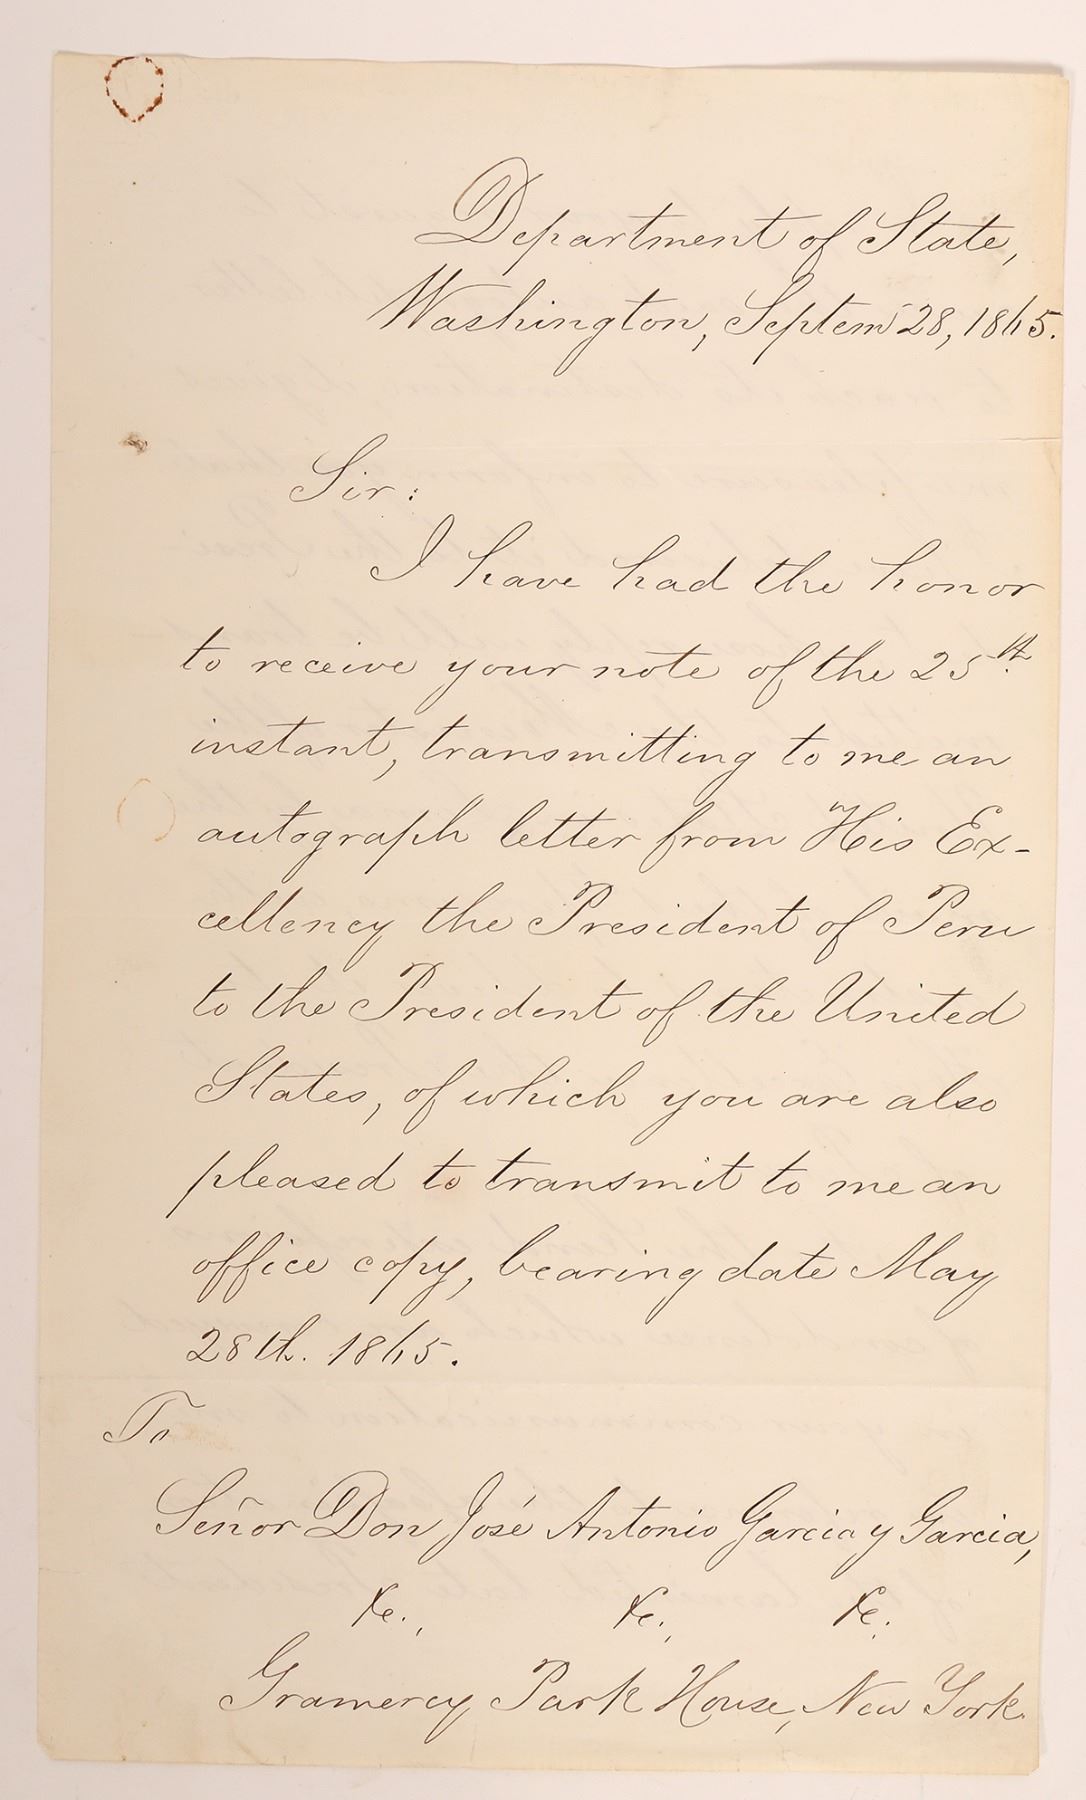 Department of State,
Washington, Septem 28, 1865.
Sir:
I have had the honor
to receive your note of the 25th.
instant, transmitting to me an
autograph letter from His Ex-
cellency the President of Peru
to the President of the United
States, of which you are also
pleased to transmit to me an
office copy, bearing date May
28th. 1865.
To
Señor Don José Antonio Garcia y Garcia,
&c., &c., &c.
Gramercy Park House, New York.